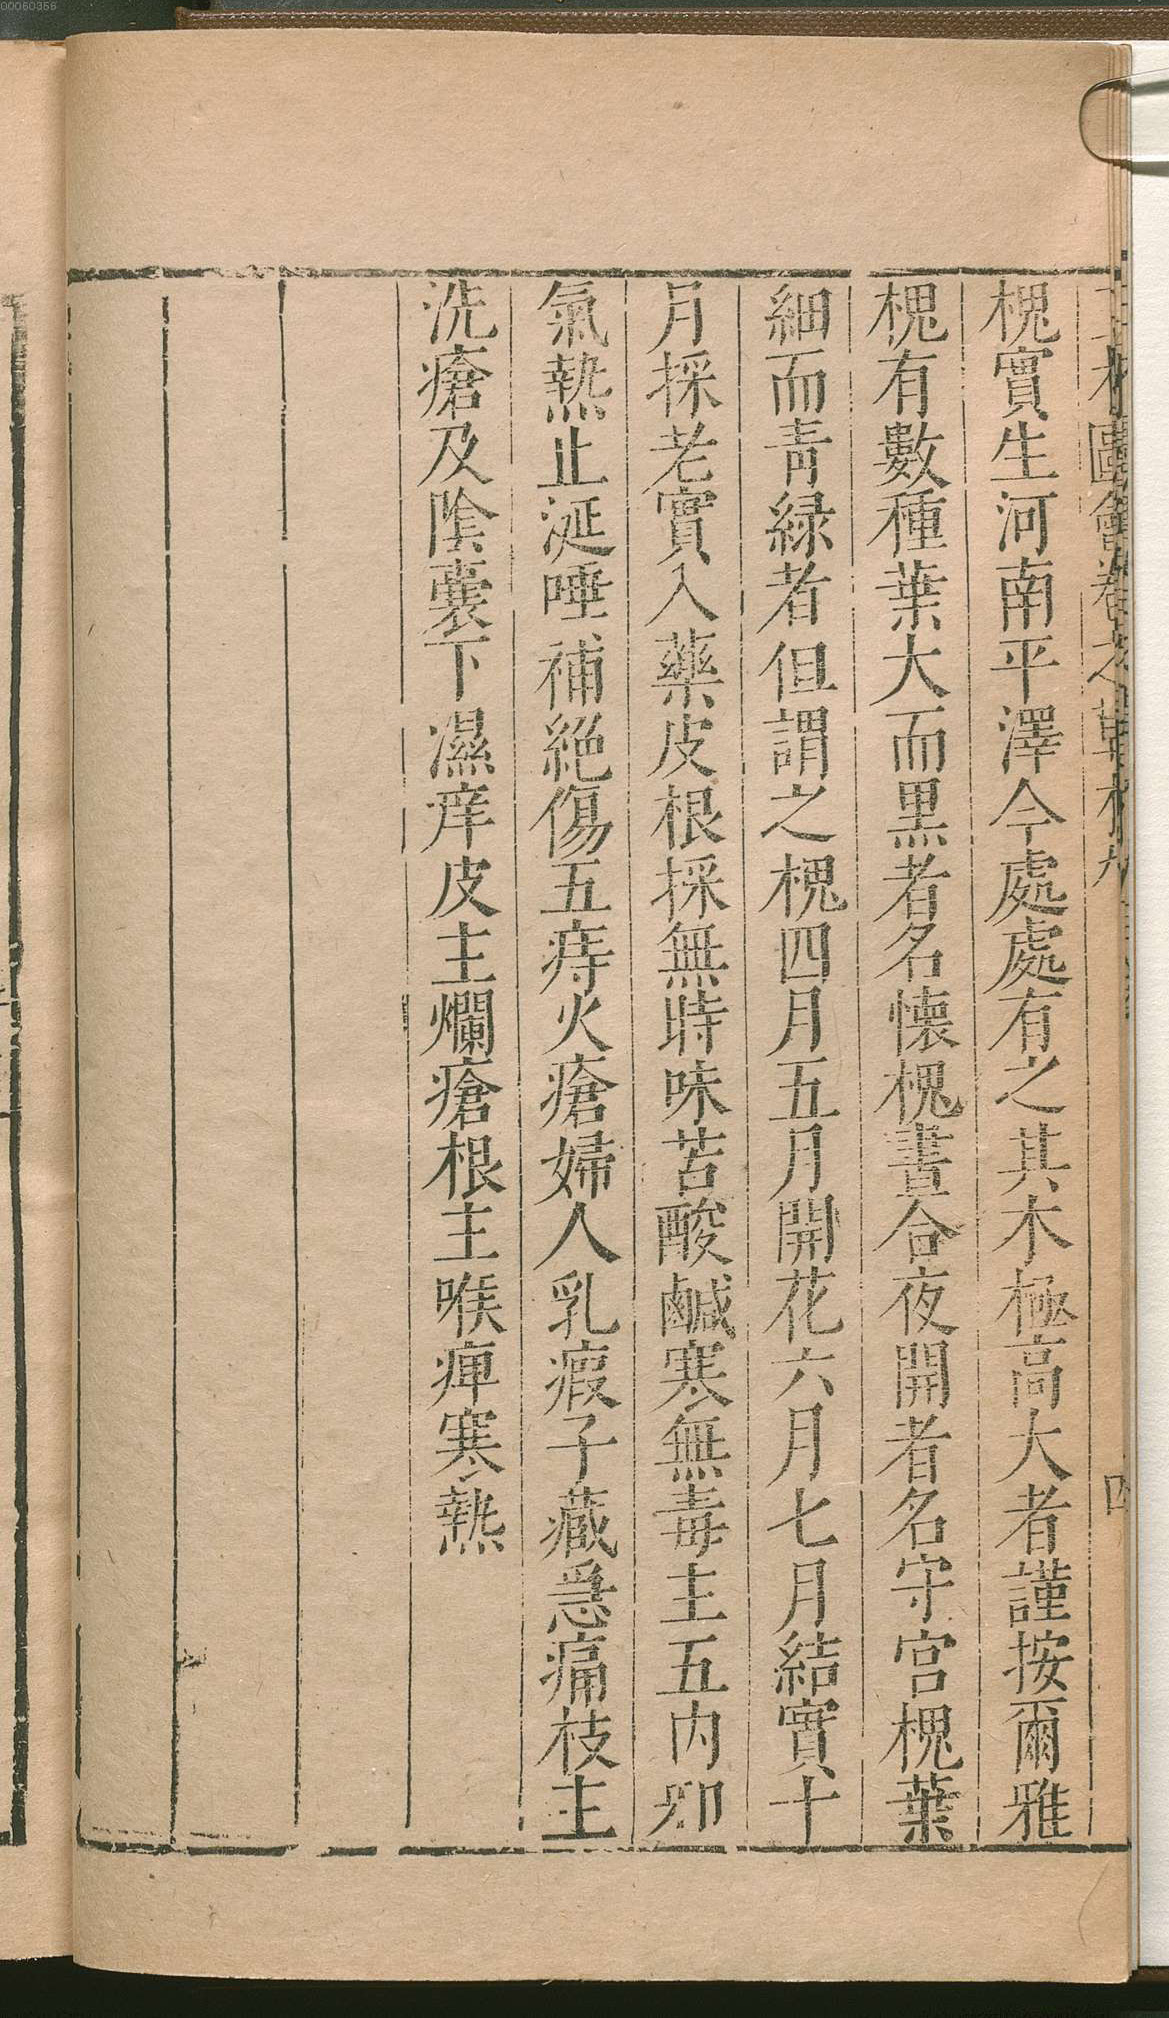 槐實生河南平澤今處處有之其木極高大者謹按爾雅
槐有數種葉大而黑者名懐槐晝合夜開者名守宮槐葉
細而青緑者但謂之槐四月五月開花六月七月結實十
月採老實入藥皮根採無時味苦酸鹹寒無毒主五内邪
氣熱止涎唾補絕傷五痔火瘡婦人乳瘕子藏急痛枝主
洗瘡及陰囊下濕痒皮主爛瘡根主喉痺寒熱
00060356